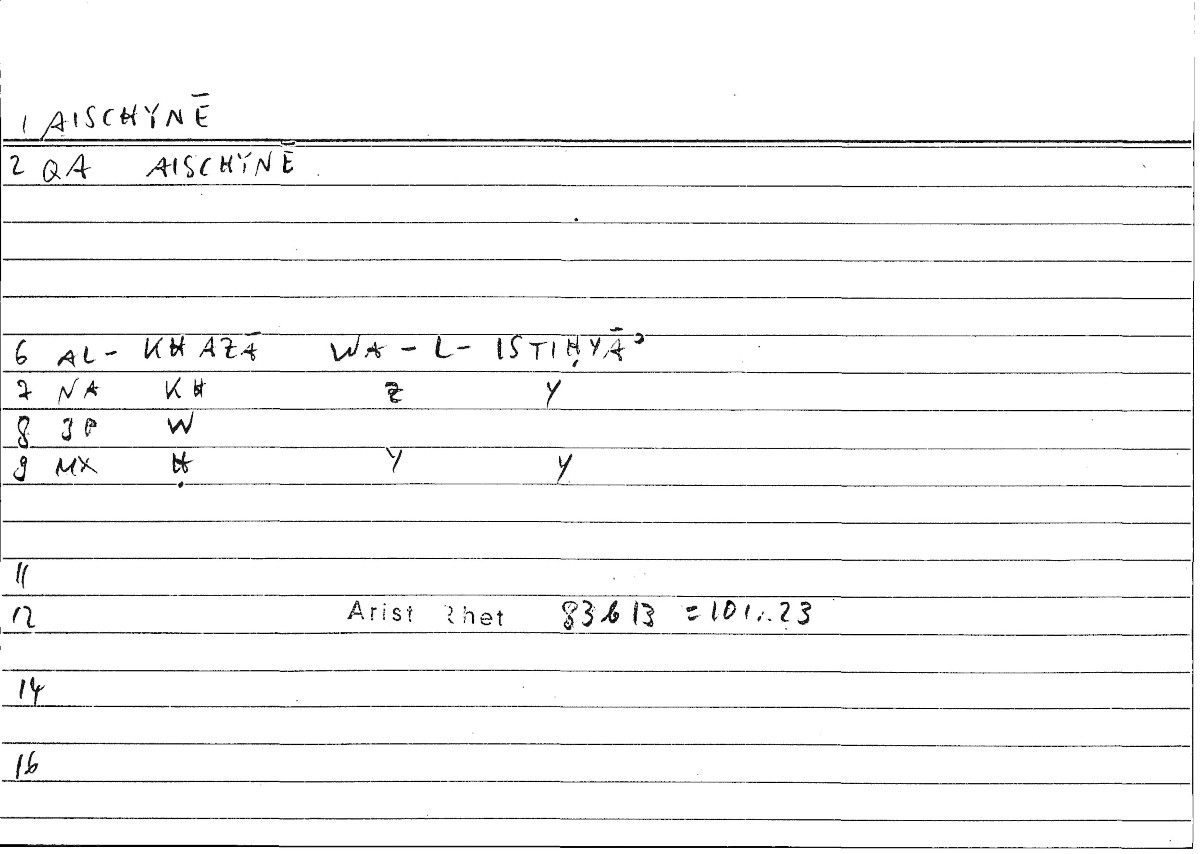 1 AISCHYNĒ
2 QA AISCHYNĒ
6 AL- KHAZĀ WA - L - ISTIḤYĀʾ
7 NA KH Z Y
8 3P W
9 MX Ḥ Y Y
11
12 Arist Rhet 83b13 = 101,.23
14
16